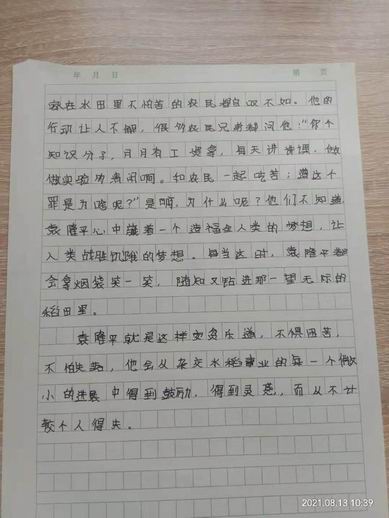 年 月 日 第 页
在水田里不怕苦的农民都自叹不如。他的
行动让人不解，很多农民兄弟都问他："你个
知识分子，月月有工资拿，每天讲讲课，做
做实验功夫闲啊。和农民一起吃苦；遭这个
罪是为啥呢？"是啊，为什么呢？他们不知道
袁隆平心中藏着一个造福全人类的梦想，让
人类战胜饥饿的梦想。每当这时，袁隆平都
会拿烟袋笑一笑，随知又踏进那一望无际的
稻田里。
袁隆平就是这样安贫乐道，不惧困苦，
不怕失败，他会从杂交水稻事业的每一个微
小的进展中得到鼓励，得到灵感，而从不计
较个人得失。
2021.08.13 10:39